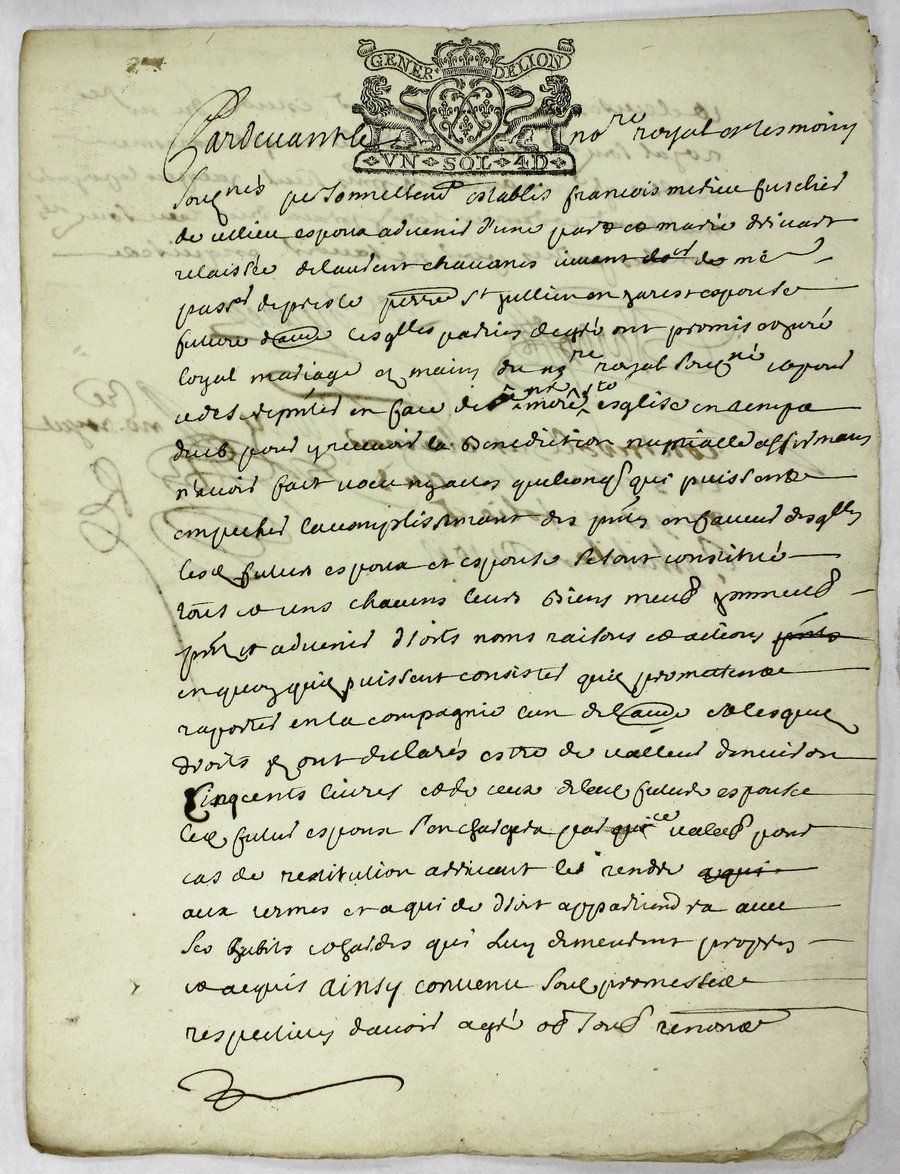 GENER DELION
VN SOL 4D
Pardevant le no.re royal et tesmoins
Soubnés personnellemt establis francois
de espoux advenir d'une part et marie
relaissée de laurent chavanes de me
St Jullien en Jarest espouse
future d'autre lesqlles parties de gré ont promis
loyal mariage es mains du nre royal soubné
se presenter en face de nre mere ste esglise en temps
deub pour y recevoir la benediction nuptialle affirmans
n'avoir fait voeu ny actes quelconqs qui puissent
empecher lacomplissement des pntes en faveur desqlles
lesd futurs espoux et espouse se sont constitué
tous et uns chacuns leurs biens meubs immeubs
pnts et advenir droits noms raisons et actions pnts
en quoy quils puissent consister quils promettent
raporter en la compagnie lun de lautre et lesquels
droits ils ont declarés estre de valleur denviron
Cinqcents livres et de ceux de lad future espouse
led futur espoux s'en chargera pour
cas de restitution arrivant les rendre a qui
aux termes et a qui de droit appartiendra avec
ses habits et hardes qui luy demeurent propres
et acquis ainsy convenu soubs promesse
respectives davoir agré obs soubs renonce